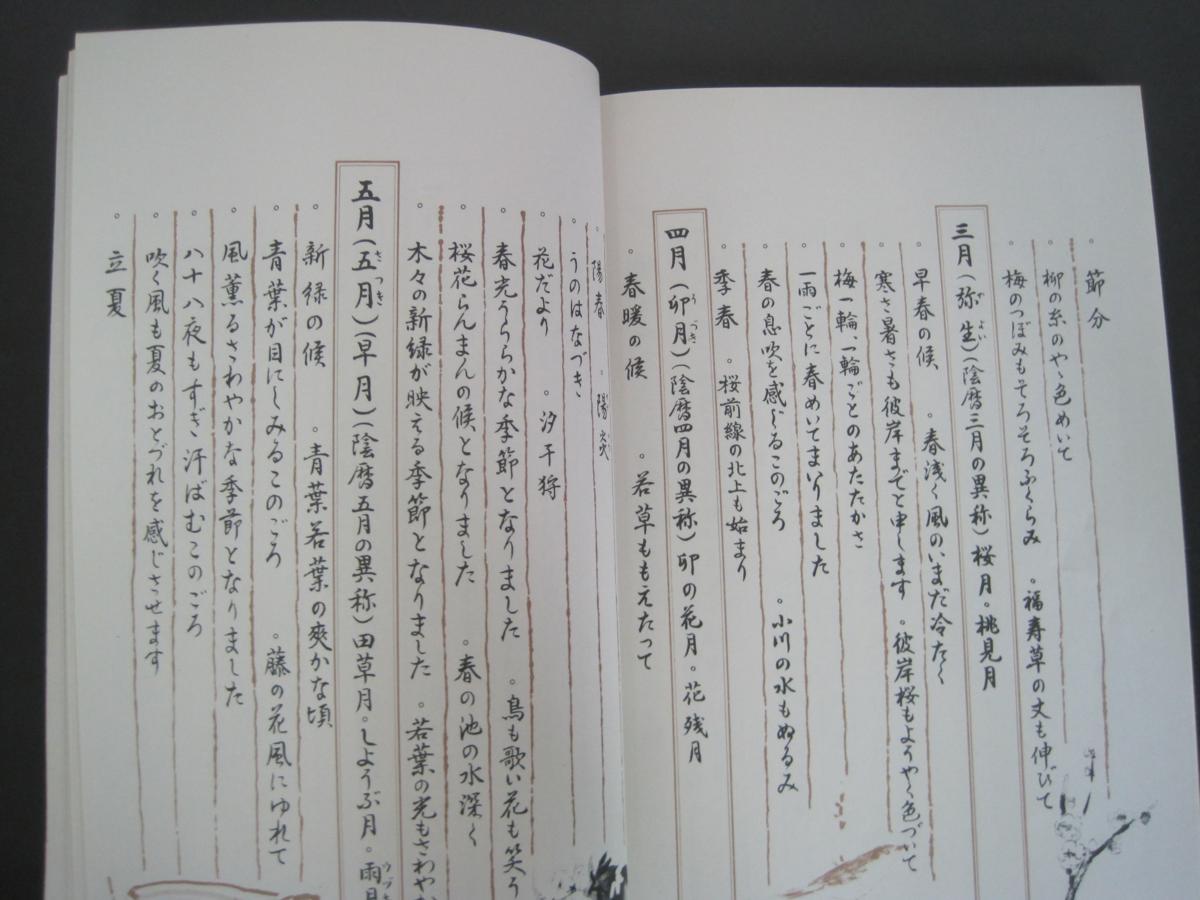 。節分
。柳の糸のやゝ色めいて
。梅のつぼみもそろそろふくらみ 。福寿草の丈も伸びて
三月(弥生)(陰暦三月の異称)桜月。桃見月
。早春の候 。春浅く風のいまだ冷たく
。寒さ暑さも彼岸までと申します 。彼岸桜もようやく色づいて
。梅一輪、一輪ごとのあたたかさ
。一雨ごとに春めいてまいりました
。春の息吹を感じるこのごろ 。小川の水もぬるみ
。季春 。桜前線の北上も始まり
四月(卯月)(陰暦四月の異称)卯の花月。花残月
。春暖の候 。若草ももえたって
。陽春 。陽炎
。うのはなづき
。花だより 。汐干狩
。春光うららかな季節となりました 。鳥も歌い花も笑う
。桜花らんまんの候となりました 。春の池の水深く
。木々の新緑が映える季節となりました 。若葉の光もさわや
五月(五月)(早月)(陰暦五月の異称)田草月。しようぶ月。雨月
。新緑の候 。青葉若葉の爽かな頃
。青葉が目にしみるこのごろ 。藤の花風にゆれて
。風薫るさわやかな季節となりました
。八十八夜もすぎ汗ばむこのごろ
。吹く風も夏のおとづれを感じさせます
。立夏